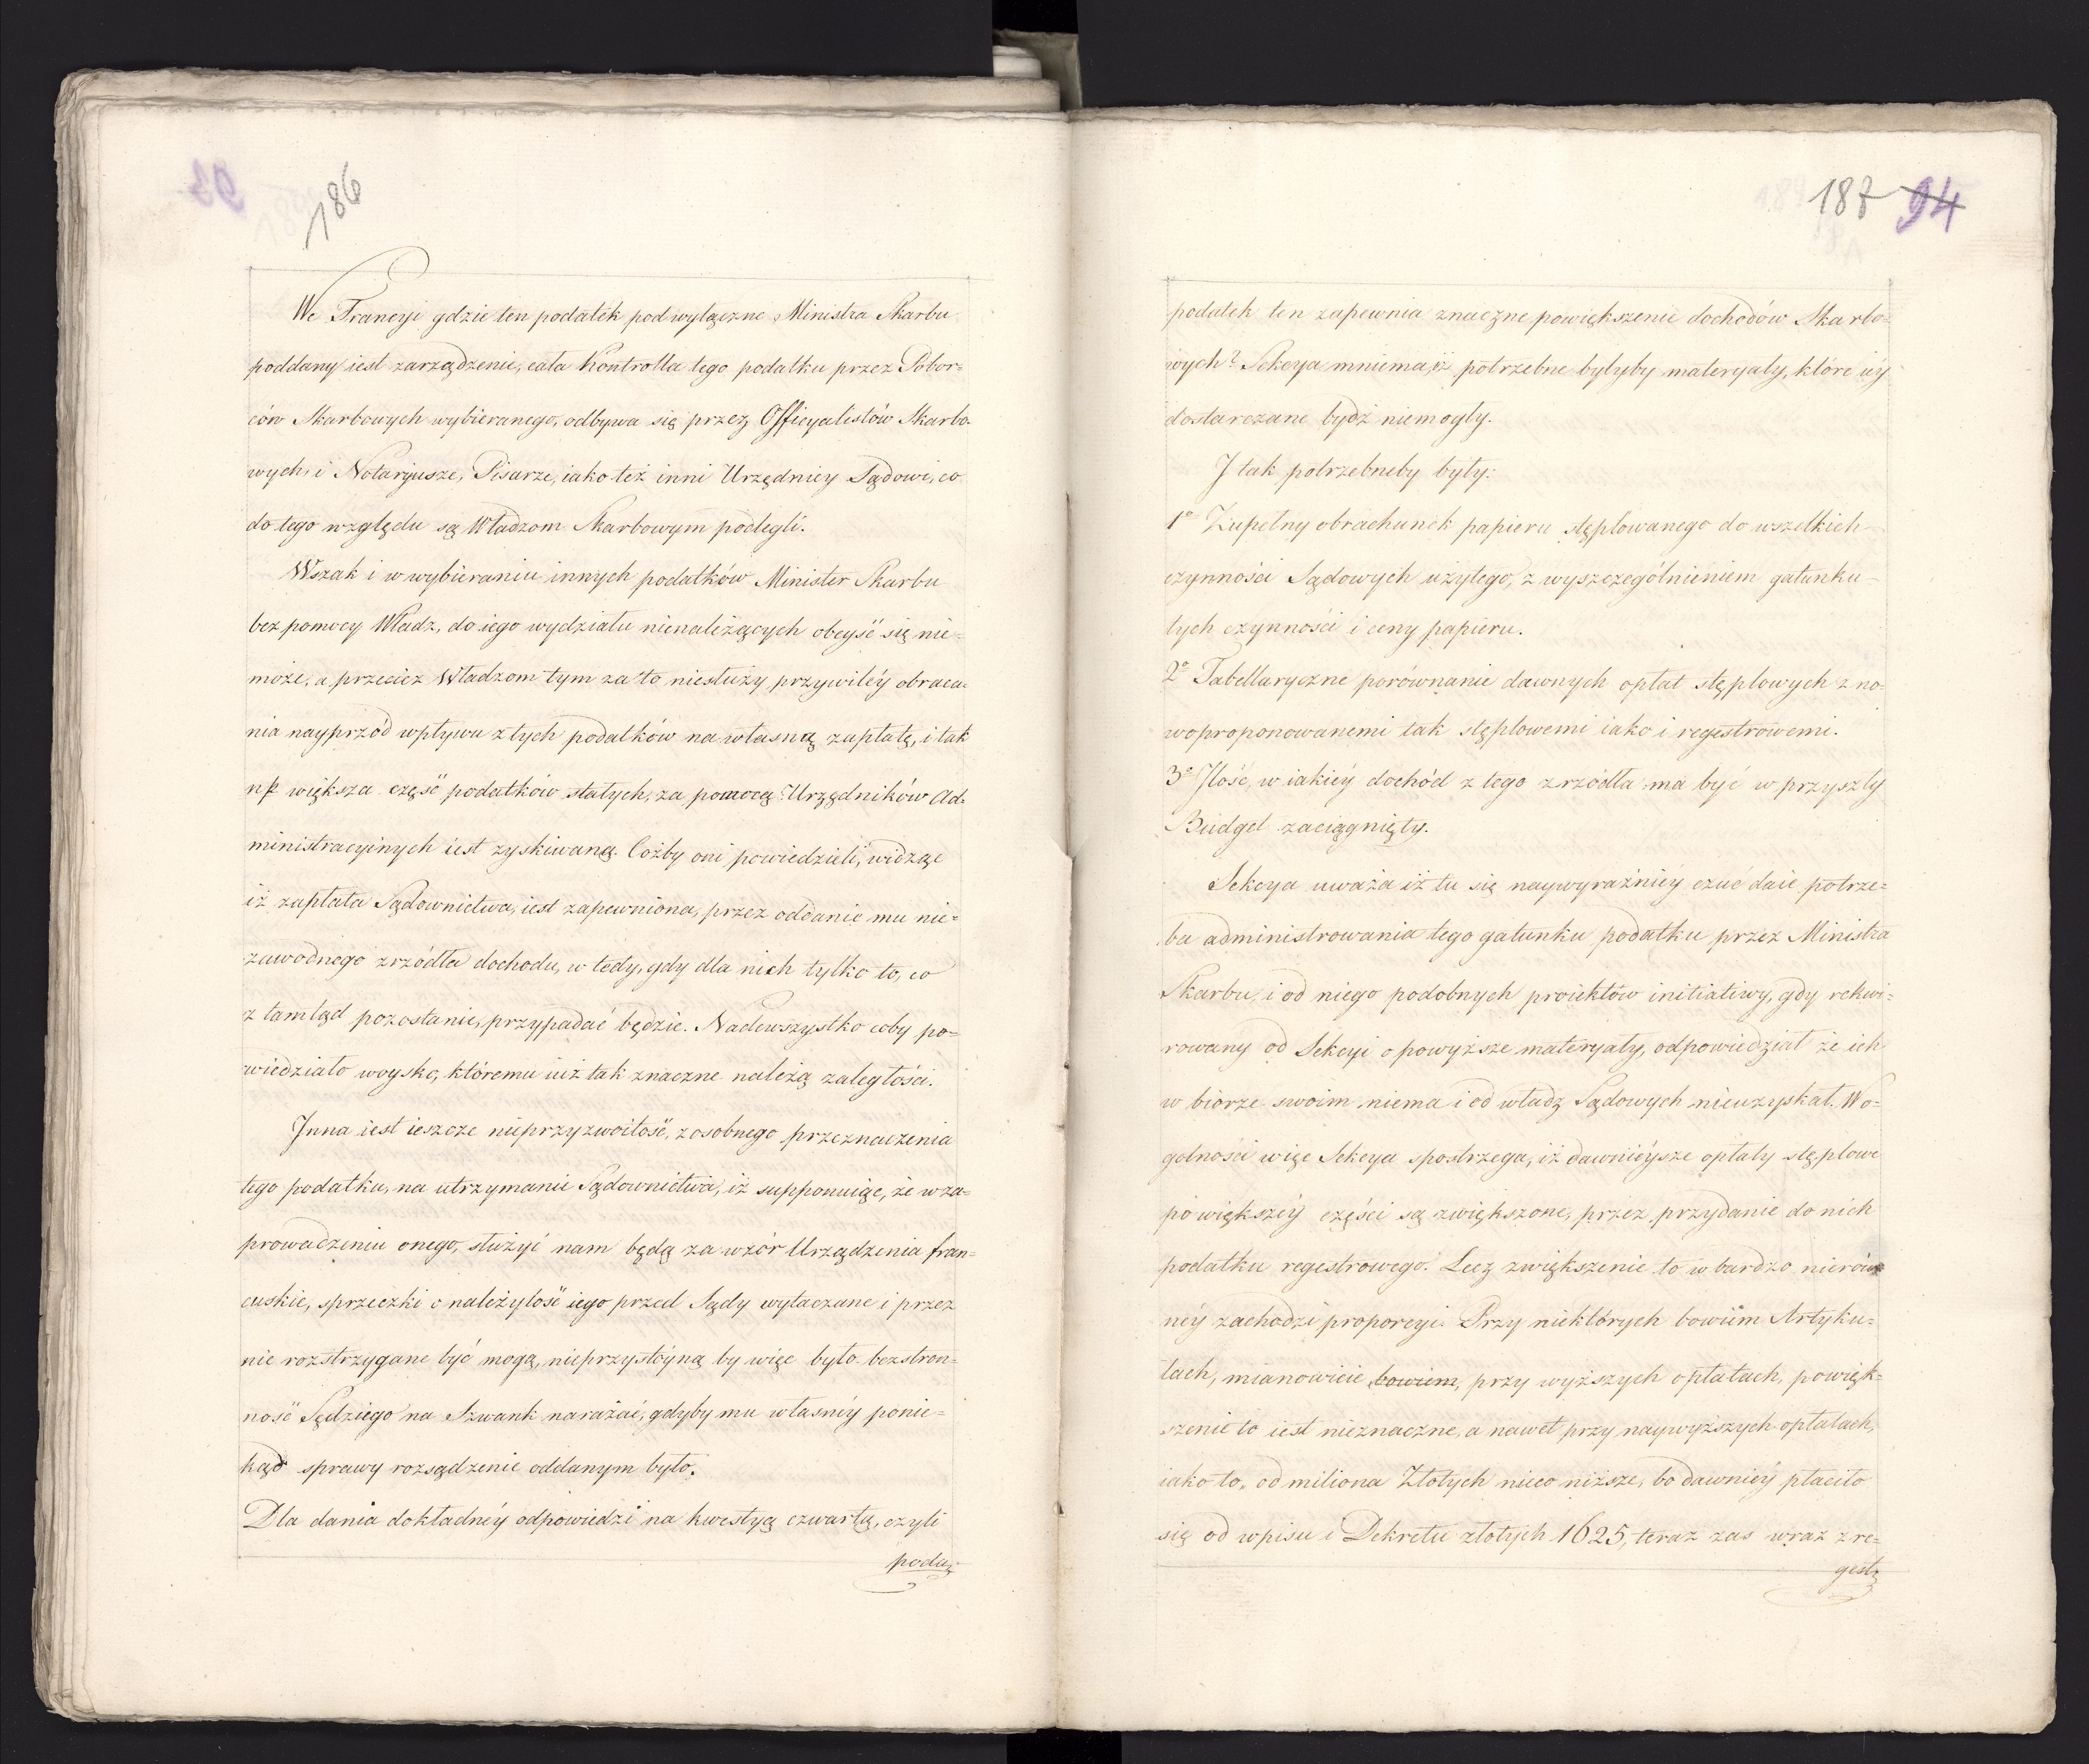 186
We Francyi gdzie ten podatek pod wyłączne Ministra Skarbu
poddany iest zarządzenie, cała Kontrolla tego podatku przez Pobor=
ców Skarbowych wybieranego, odbywa się przez Officyalistów Skarbo-
wych, i Notaryusze, Pisarze, iako też inni Urzędnicy Sądowi, co
do tego względu są Władzom Skarbowym podlegli.
Wszak i w wybieraniu innych podatków Minister Skarbu
bez pomocy Władz, do iego wydziału nienależących obeyść się nie=
może, a przecież Władzom tym za to niesłuży przywiléy obraca=
nia nayprzód wpływu z tych podatków na własną zapłatę, i tak
np większa część podatków stałych, za pomocą Urzędników Ad=
ministracyinych iest zyskiwaną. Cóżby oni powiedzieli, widząc
iż zapłata Sądownictwa, iest zapewniona, przez oddanie mu nie=
zawodnego zrzódła dochodu, w tedy, gdy dla nich tylko to, co
z tamtąd pozostanie, przypadać będzie. Nadewszystko coby po=
wiedziało woysko, któremu iuż tak znaczne należą zaległości.
Jnna iest ieszcze nieprzyzwoitość, z osobnego przeznaczenia
tego podatku, na utrzymanie Sądownictwa, iż supponuiąc, że w za=
prowadzeniu onego, służyć nam będą za wzór Urządzenia fran=
cuskie, sprzeczki o należytość iego przed Sądy wytaczane i przez
nie rozstrzygane być mogą, nieprzystóyną by więc było bezstron=
ność Sędziego na Szwank narażać, gdyby mu własnéy ponie=
kąd sprawy rozsądzenie oddanym było.
Dla dania dokładnéy odpowiedzi na kwestyą czwartą, czyli
poda=
187 94
podatek ten zapewnia znaczne powiększenie dochodów Skarbo=
wych? Sekcya mniema, iż potrzebne byłyby materyały, które iéy
dostarczane bydź niemogły.
J tak potrzebneby były:
1o Zupełny obrachunek papieru stęplowanego do wszelkich
czynności Sądowych użytego, z wyszczególnieniem gatunku
tych czynności i ceny papieru.
2o Tabellaryczne porównanie dawnych opłat stęplowych z no=
woproponowanemi tak stęplowemi iako i regestrowemi.
3o Jlość, w iakiéy dochód z tego zrzódła ma być w przyszły
Budget zaciągnięty.
Sekcya uważa iż tu się naywyraźniéy czuć daie potrze=
ba administrowania tego gatunku podatku przez Ministra
Skarbu, i od niego podobnych proiektów initiatiwy, gdy rekwi=
rowany od Sekcyi o powyższe materyały, odpowiedział że ich
w biórze swoim niema i od władz Sądowych nieuzyskał. Wo=
gólności więc Sekcya spostrzega, iż dawnieysze opłaty stęplowe
po większéy części są zwiększone, przez przydanie do nich
podatku regestrowego. Lecz zwiększenie to w bardzo nierów
néy zachodzi proporcyi. Przy niektórych bowiem Artyku=
łach, mianowicie bowiem, przy wyższych opłatach, powięk=
szenie to iest nieznaczne, a nawet przy naywyższych opłatach,
iako to, od miliona Złotych nieco niższe, bo dawniéy płaciło
się od wpisu i Dekretu złotych 1625, teraz zas wraz z re=
gest=